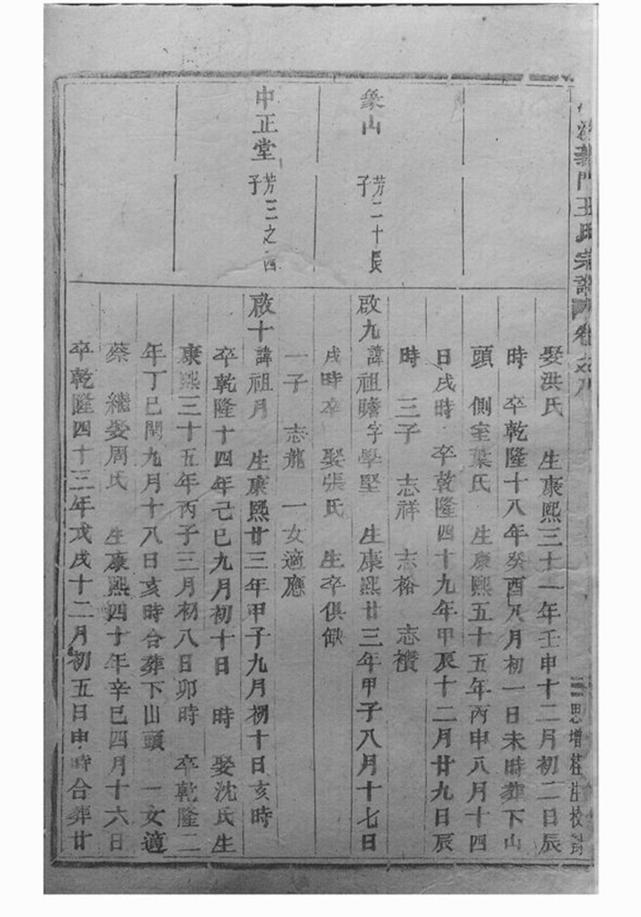 義門王氏宗譜 卷之八
娶洪氏 生康熙三十一年壬申十二月初二日辰
時 卒乾隆十八年癸酉八月初一日未時葬下山
頭 側室葉氏 生康熙五十五年丙申八月十四
日戌時 卒乾隆四十九年甲辰十二月廿九日辰
時 三子 志祥 志裕
象山 芳二十長子
啟九諱祖瞻字學堅 生康熙廿三年甲子八月十七日
戌時卒 娶張氏 生卒俱缺
一子 志龍 一女適應
中正堂 芳三之四子
啟十諱祖月 生康熙廿三年甲子九月初十日亥時
卒乾隆十四年己巳九月初十日 時 娶沈氏生
康熙三十五年丙子三月初八日卯時 卒乾隆二
年丁巳閏九月十八日亥時合葬下山頭 一女適
蔡 繼娶周氏 生康熙四十年辛巳四月十六日
卒乾隆四十三年戊戌十二月初五日申時合葬廿